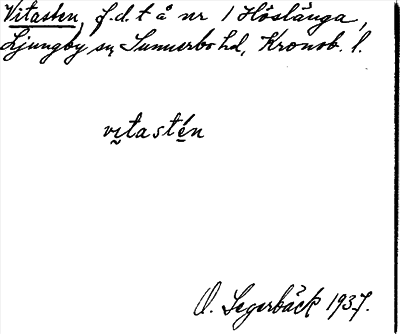 Vitasten, f.d. t å nr 1 Höslänga,
Ljungby sn, Sunnerbo hd, Kronob. l.
vi̲tasté̲n
O. Segerbäck 1937.